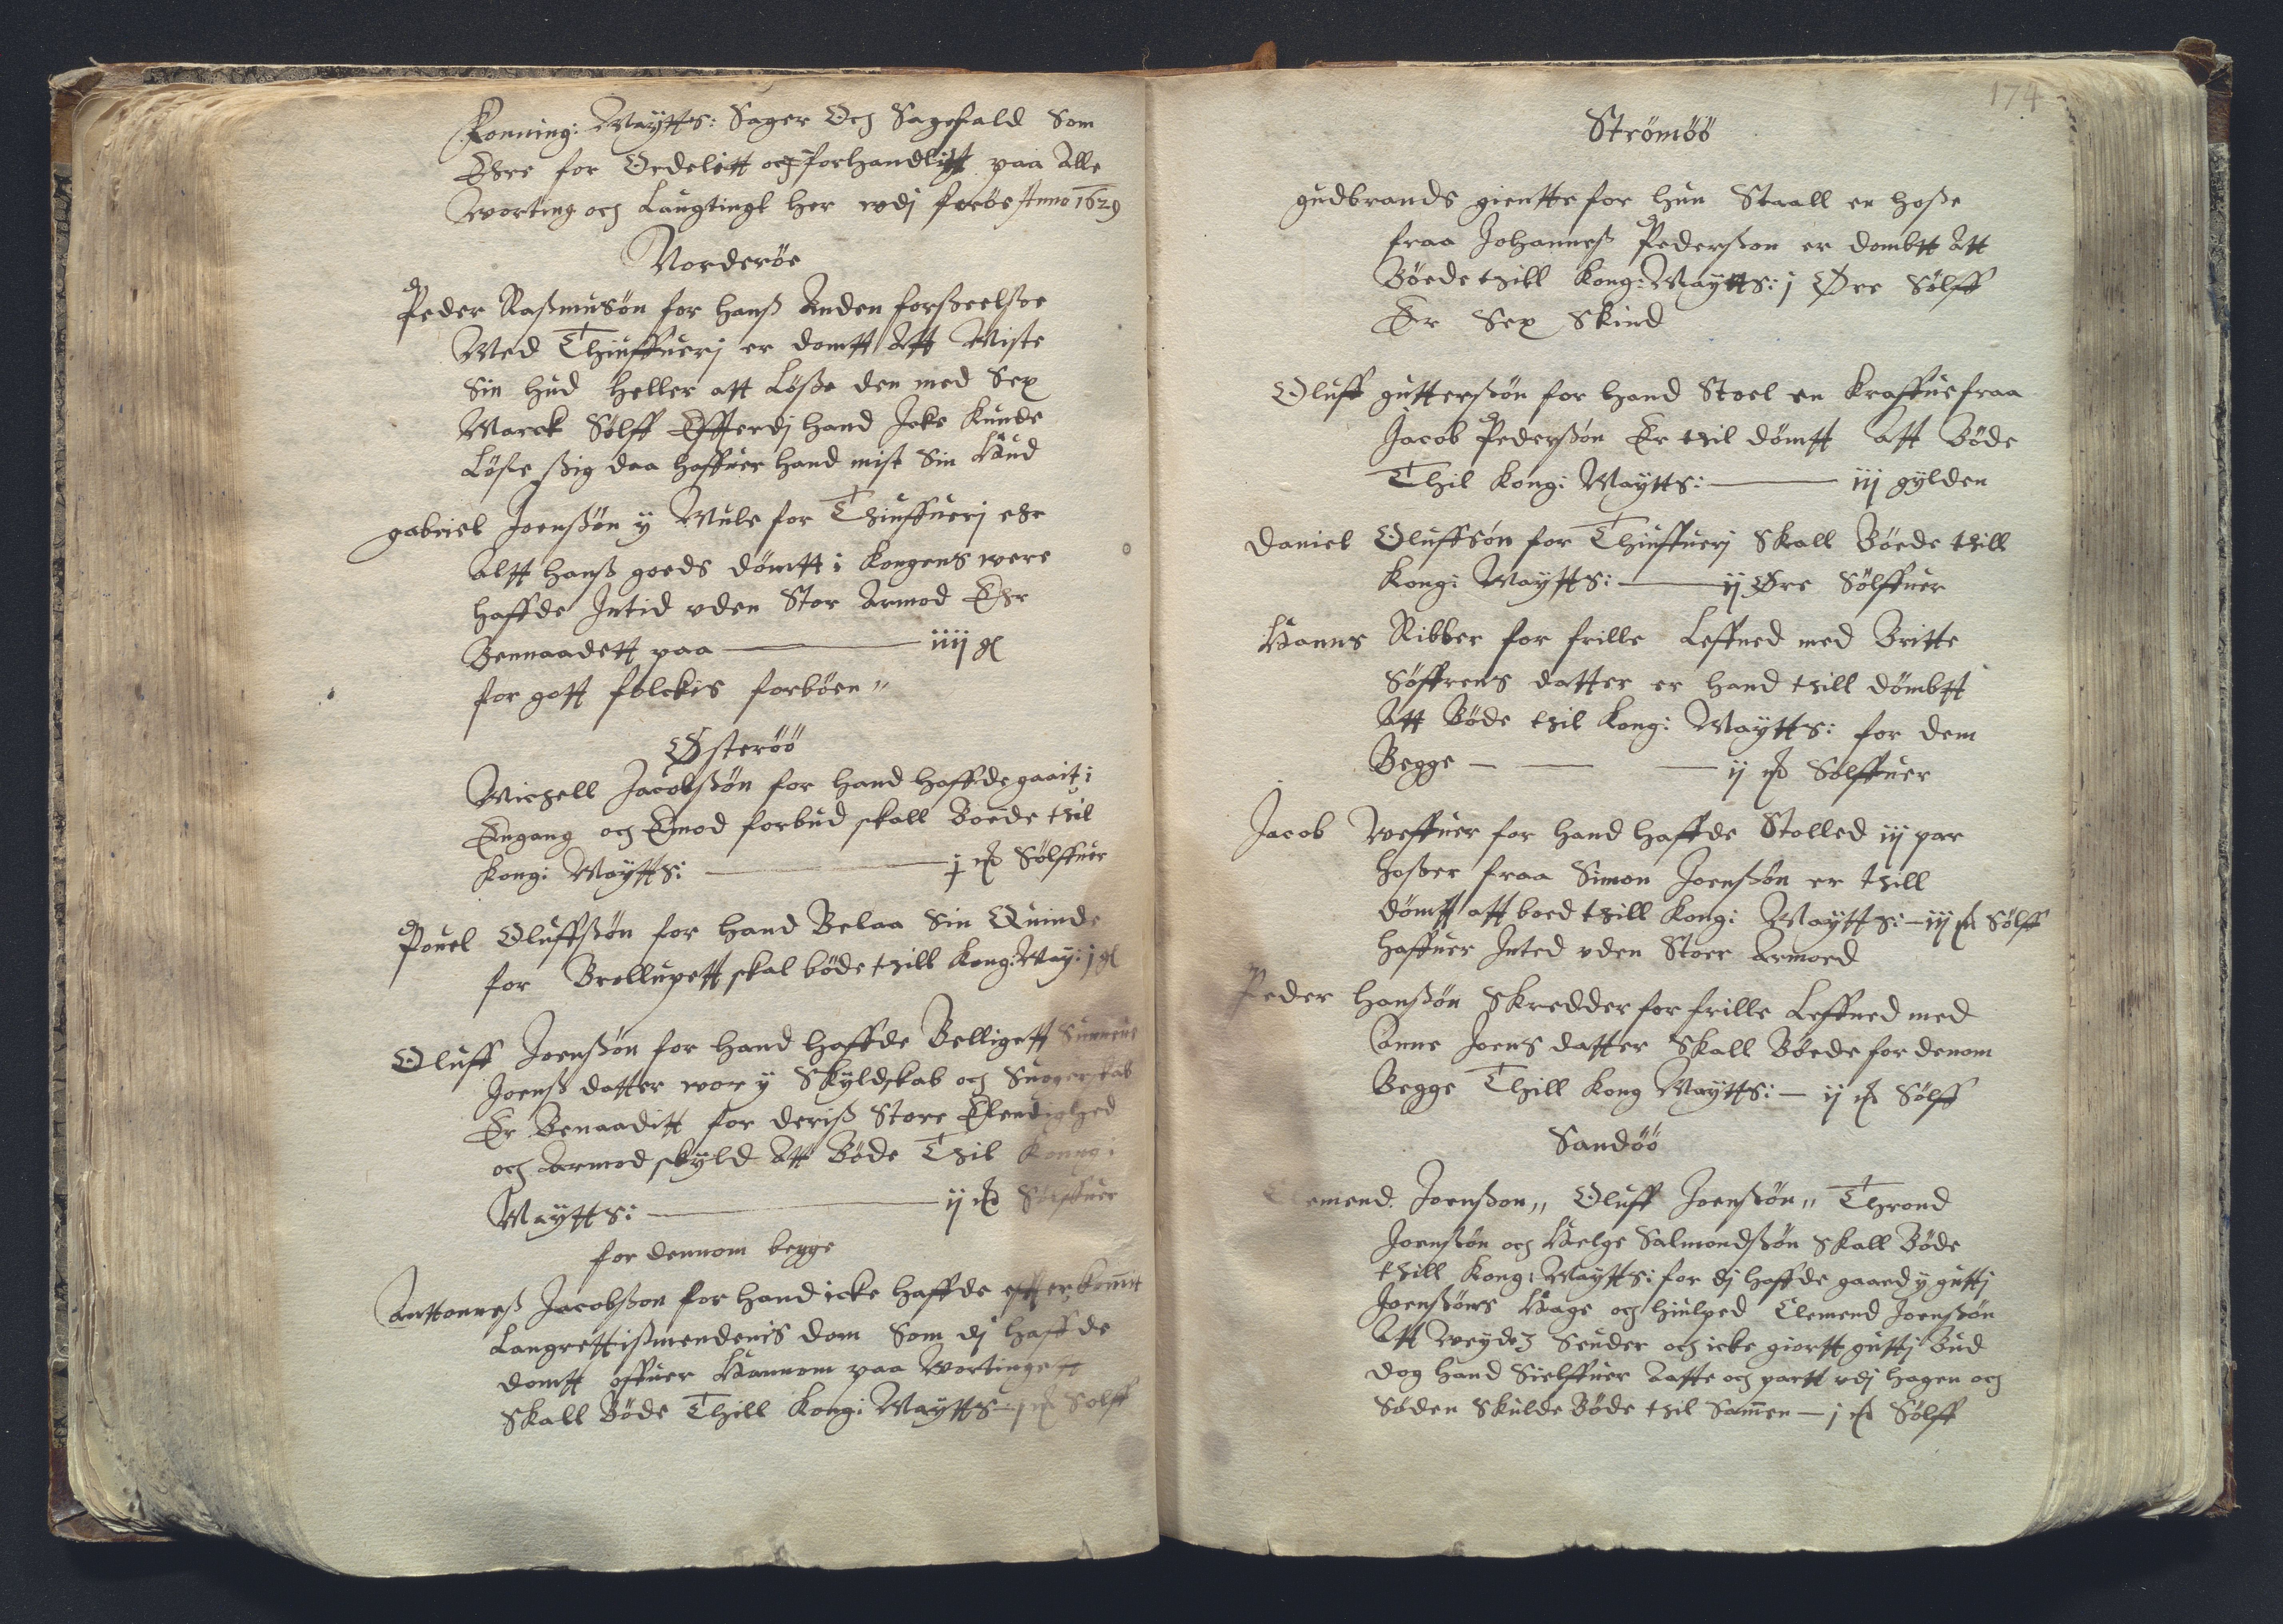 Konning: Maÿtts: Sager Och Sagefald Som
Ehre for Ordelett och forhandlitt paa Alle
worting och Laugtingt her wdj ferøe Anno 1629
Norderøe
Peder Raßmusøn for hanß Anden forßeelße
Med Thiuffuerj er domtt Att Miste
Sin hud heller att Løße den med Sex
Marck Sølff Effterdj hand Icke Kunde
Løße ßig daa haffuer hand mist Sin Hud
gabriel Joenßøn ÿ Mule for Thiuffuerj ehr
Altt hanß goeds dømtt i Kongens were
haffde Intid vden Stor Armod Ehr
Bennaadett paa iiij gl
for gott folckis forbøen„
Østerøö
Michell Jacobßøn for hand haffde gaait i
Engang och Emod forbud skall Boede thil
Kong: Maÿtts: j mk Sølffuer
Pouel Oluffßøn for hand Belaa Sin Quinde
for Brøllupett skal bøde thill Kong: Maÿ: j gl
Oluff Joenßøn for hand haffde Belligett Sunneue
Joenß datter wor ÿ Skÿldskab och Suogerskab
Er Benaaditt for deriß Store Elendighed
och Armod skÿld Att Bøde Thil Konng:
Maÿtts: ij mk Sølffuer
for dennom begge
Anttonneß Jacobßøn for hand icke haffde effterkomit
Langrettißmendenis dom Som dj haffde
domtt offuer Hannom paa Wortingett
Skall Bøde Thill Kong: Maÿtts j mk Sølff
174
Strømöö
gudbrands gientte for hun Staall en hoße
fraa Johanneß Pederßon er dombtt Att
Böede thill Kong: Maÿtts: j Øre Sølff
Er Sex Skind
Oluff gutterßøn for hand Stoel en Kraffue fraa
Jacob Pederßøn Er thil dømtt Att Bøde
Thil Kong: Maÿtts: iij gÿlden
Daniel Oluffsøn for Thiuffuerj Skall Böede thill
Kong: Maÿtts: ij Øre Sølffuer
Hanns Ribber for frille Leffned med Britte
Søffrens datter er hand thill dømbtt
Att Bøde thil Kong: Maÿtts: for dem
Begge ij mk Sølffuer
Jacob Weffuer for hand haffde Stolled iij par
hoßer fraa Simon Joenßøn er thill
dømtt att boed thill Kong: Maÿtts: iij mk Sølff
haffuer Inted vden Stoer Armoed
Peder Hanßøn Skredder for frille Leffned med
Anne Joens datter Skall Böede for denom
Begge Thill Kong Maÿtts: ij mk Sølff
Sandöö
Clemend Joenßon„ Oluff Joenßøn„ Thrond
Joenßøn och Helge Salmondßøn Skall Bøde
thill Kong: Maÿtts: for dj haffde gaaed ÿ guttj
Joenßøns Hage och hiulped Clemend Joenßøn
Att weÿde Seuder och icke giortt guttj Bud
dog hand Sielffuer Aatte och partt vdj hagen och
Søden Skulde Bøde thil Samen j mk Sølff